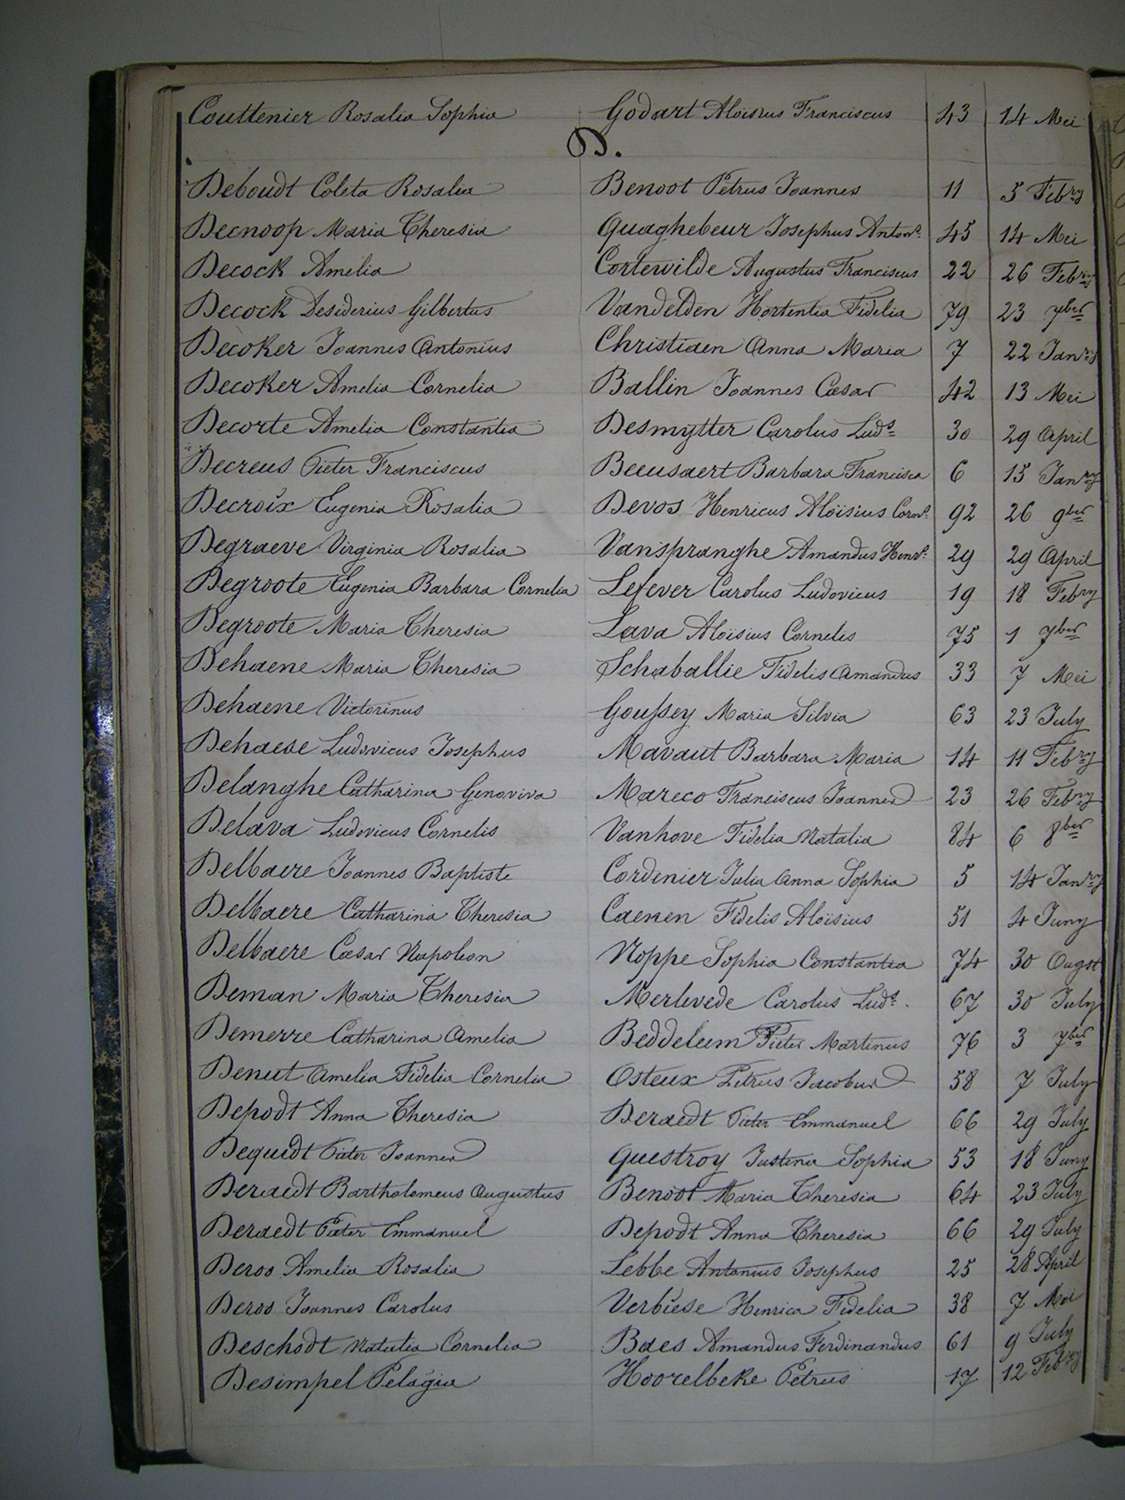 Couttenier Rosalia Sophia Godart Aloïsius Franciscus 43 14 Mei
D.
Deboudt Coleta Rosalia Benoot Petrus Joannes 11 5 Febry
Decnoop Maria Theresia Quaghebeur Josephus Anton. 45 14 Mei
Decock Amelia Cortewilde Augustus Franciscus 22 26 Febry
Decock Desiderius Gilbertus Vandelden Hortentia Fidelia 79 23 7ber
Decoker Joannes Antonius Christiaen Anna Maria 7 22 Janry
Decoker Amelia Cornelia Ballin Joannes Cæsar 42 13 Mei
Decorte Amelia Constantia Desmytter Carolus Luds. 30 29 April
Decreus Pieter Franciscus Beeusaert Barbara Francisca 6 15 Janry
Decroix Eugenia Rosalia Devos Henricus Aloïsius Corn. 92 26 9ber
Degraeve Virginia Rosalia Vanspranghe Amandus Henr. 29 29 April
Degroote Eugenia Barbara Cornelia Lefever Carolus Ludovicus 19 18 Febry
Degroote Maria Theresia Lava Aloïsius Cornelis 75 1 7ber
Dehaene Maria Theresia Schaballie Fidelis Amandus 33 7 Mei
Dehaene Victorinus Goussey Maria Silvia 63 23 July
Dehaese Ludovicus Josephus Mavaut Barbara Maria 14 11 Febry
Delanghe Catharina Genoviva Mareco Franciscus Joannes 23 26 Febry
Delava Ludovicus Cornelis Vanhove Fidelia Natalia 84 6 8ber
Delbaere Joannes Baptiste Cordenier Julia Anna Sophia 5 14 Janry
Delbaere Catharina Theresia Caenen Fidelis Aloïsius 51 4 Juny
Delbaere Cæsar Napoleon Noppe Sophia Constantia 74 30 Ougst
Deman Maria Theresia Merlevede Carolus Luds. 67 30 July
Demerre Catharina Amelia Beddeleem Pieter Martinus 76 3 7ber
Denut Amelia Fidelia Cornelia Osteux Petrus Jacobus 58 7 July
Depodt Anna Theresia Deraedt Pieter Emmanuel 66 29 July
Dequidt Pieter Joannes Questroy Justina Sophia 53 18 Juny
Deraedt Bartholomeus Augustus Benoot Maria Theresia 64 23 July
Deraedt Pieter Emmanuel Depodt Anna Theresia 66 29 July
Deroo Amelia Rosalia Lebbe Antonius Josephus 25 28 April
Deroo Joannes Carolus Verbiese Henrica Fidelia 38 7 Mei
Deschodt Natalia Cornelia Baes Amandus Ferdinandus 61 9 July
Desimpel Pelagia Hoorelbeke Petrus 17 12 Febry